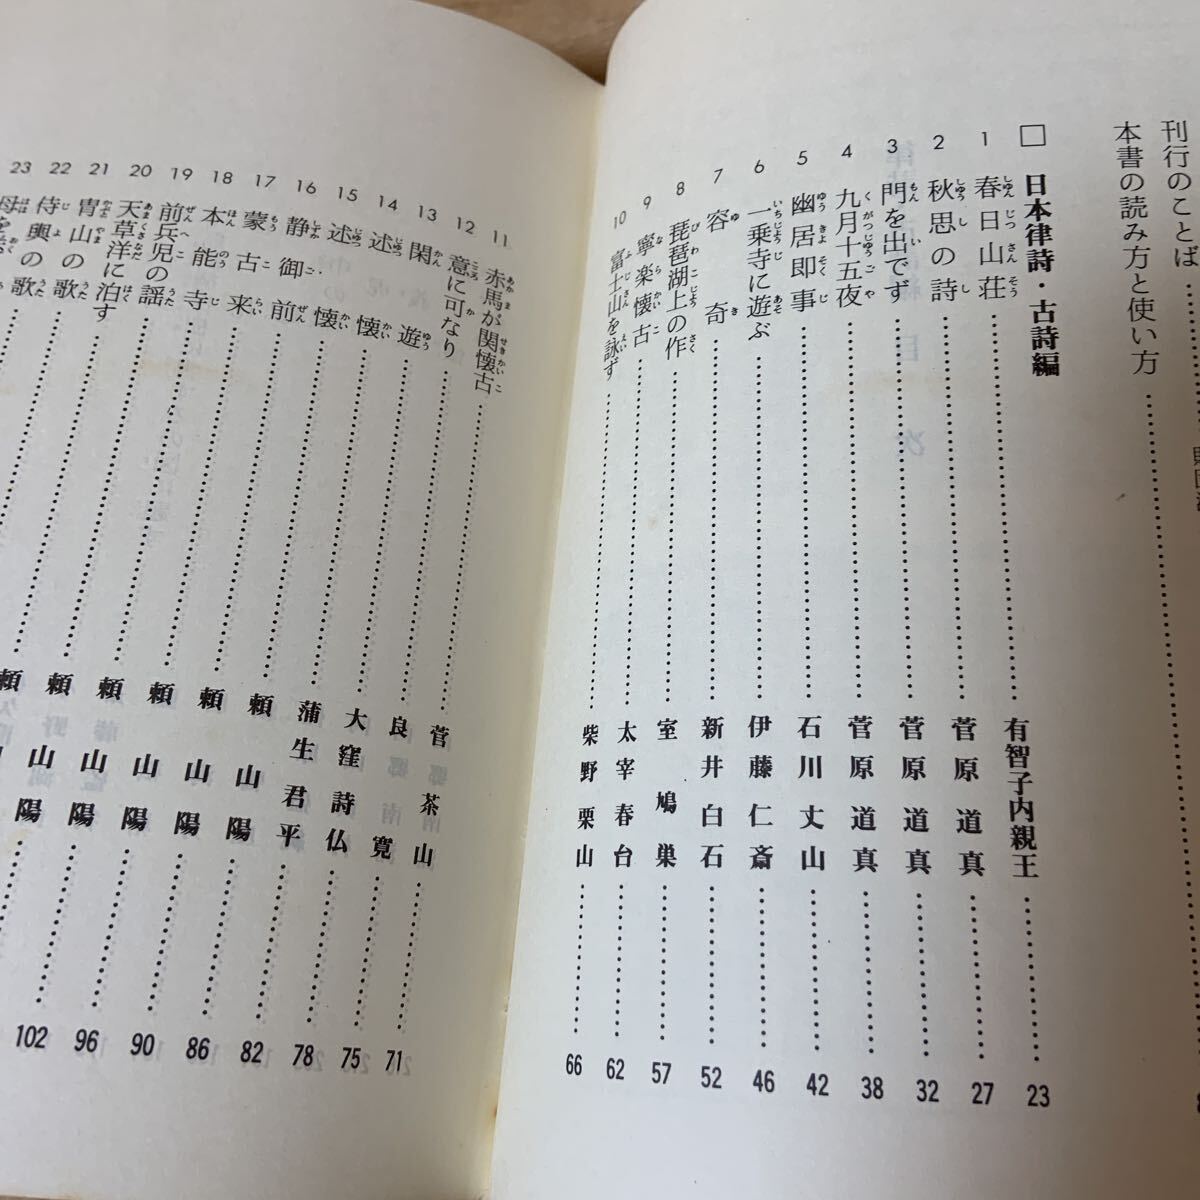 刊行のことば
本書の読み方と使い方
□ 日本律詩・古詩編
1 春日山荘 有智子内親王 23
2 秋思の詩 菅原道真 27
3 門を出でず 菅原道真 32
4 九月十五夜 菅原道真 38
5 幽居即事 石川丈山 42
6 一乗寺に遊ぶ 伊藤仁斎 46
7 容奇 新井白石 52
8 琵琶湖上の作 室鳩巣 57
9 寧楽懐古 太宰春台 62
10 富士山を詠ず 柴野栗山 66
11 赤馬が関懐古 菅茶山 71
12 意に可なり 良寛 75
13 閑遊 大窪詩仏 78
14 述懐 蒲生君平 82
15 述懐 頼山陽 86
16 静御前 頼山陽 90
17 蒙古来 頼山陽 96
18 本能寺 頼山陽 102
19 前兵児の謡 頼山陽
20 天草洋に泊す 頼山陽
21 冑山の歌
22 侍輿の歌
23 母を